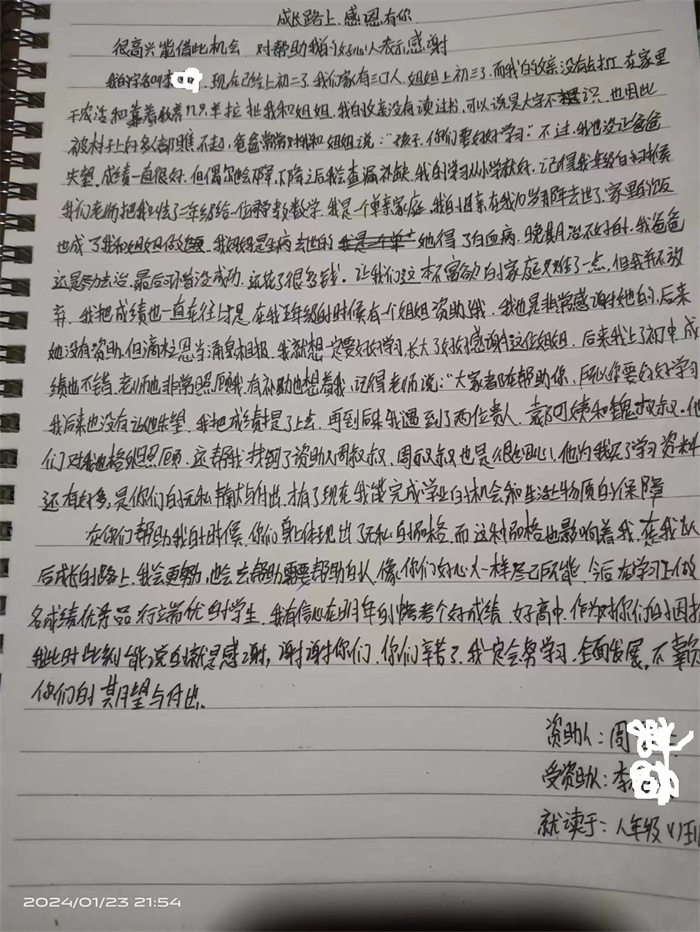 成长路上,感恩有你
很高兴能借此机会 对帮助我的好心人表示感谢
我的名字叫李 现在已经上初二了.我们家有三口人,姐姐上初三了.而我的父亲没有出去打工,在家里
干农活和靠着救养几只羊拉扯我和姐姐,我的父亲没有读过书,可以说是大字不识,也因此
被村子上的多人都瞧不起,爸爸常常对我和姐姐说:“孩子,你们要好好学习”不过,我也没让爸爸
失望,成绩一直很好.但偶尔会下降,下降之后我会查漏补缺.我的学习从小学就好,记得我年级的时候
我们老师把我 一年级给一位 数学.我是个单亲家庭,我的母亲在我10岁那年去世了.家里的饭
也成了我和姐姐做 .我妈妈是生病去世的 她得了白血病,晚期治不好的,我爸爸
还是努力去治,最后可惜没成功,还花了很多钱.让我们这本不富裕的家庭更难了一点,但我并不放
弃.我把成绩也一直在往上提.在我五年级的时候有一个姐姐资助我,我也是非常感谢她的,后来
她没有资助.但滴水之恩当涌泉相报.我就想一定要好好学习,长大了好好感谢这位姐姐.后来我上了初中,成
绩也不错.老师也非常照顾我,有补助也想着我,记得老师说:“大家都在帮助你,所以你要好好学习
我后来也没有让他失望.我把成绩提了上去,再到后来我遇到了两位贵人,袁阿姨和魏叔叔.他
们对我也格外照顾,还帮我找到了资助人周叔叔,周叔叔也是很细心,他为我买了学习资料
还有好多,是你们的无私奉献与付出,才有了现在我能完成学业的机会和生活上物质的保障
在你们帮助我的时候,你们身上体现出了无私的品格,而这种品格也影响着我,在我以
后成长的路上,我会更努力,也会去帮助需要帮助的人,像你们好心人一样尽己所能,今后在学习上做
名成绩优秀品行端优的学生,我有信心在明年的中考考个好成绩,好高中,作为对你们的回报
我此时此刻能说的就是感谢,谢谢你们,你们辛苦了.我一定会努学习,全面发展,不辜负
你们的期望与付出.
资助人:周
受资助人:李
就读于:八年级
2024/01/23 21:54